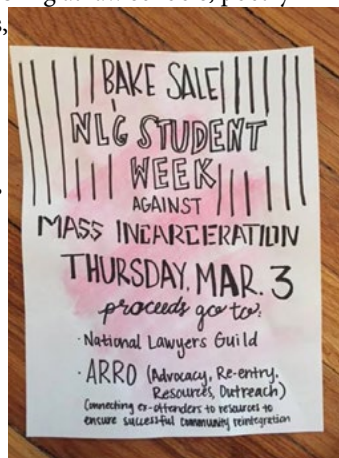 BAKE SALE
NLG STUDENT
WEEK
AGAINST
MASS INCARCERATION
THURSDAY, MAR. 3
proceeds go to:
· National Lawyers Guild
· ARRO (Advocacy, Re-entry,
Resources, Outreach)
Connecting ex-offenders to resources to
ensure successful community reintegration